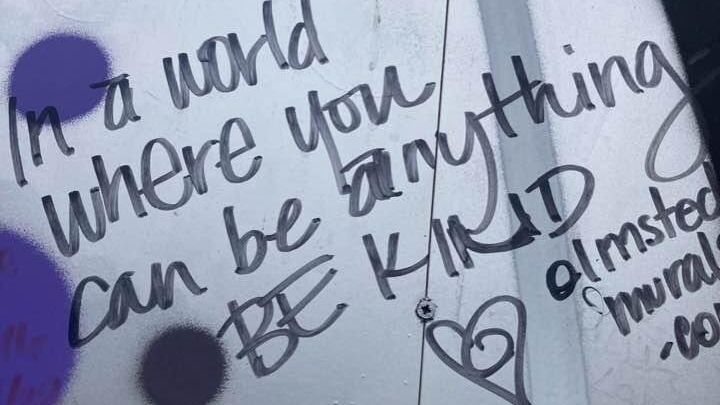 In a world
where you
can be anything
BE KIND
olmsted
mural
.co